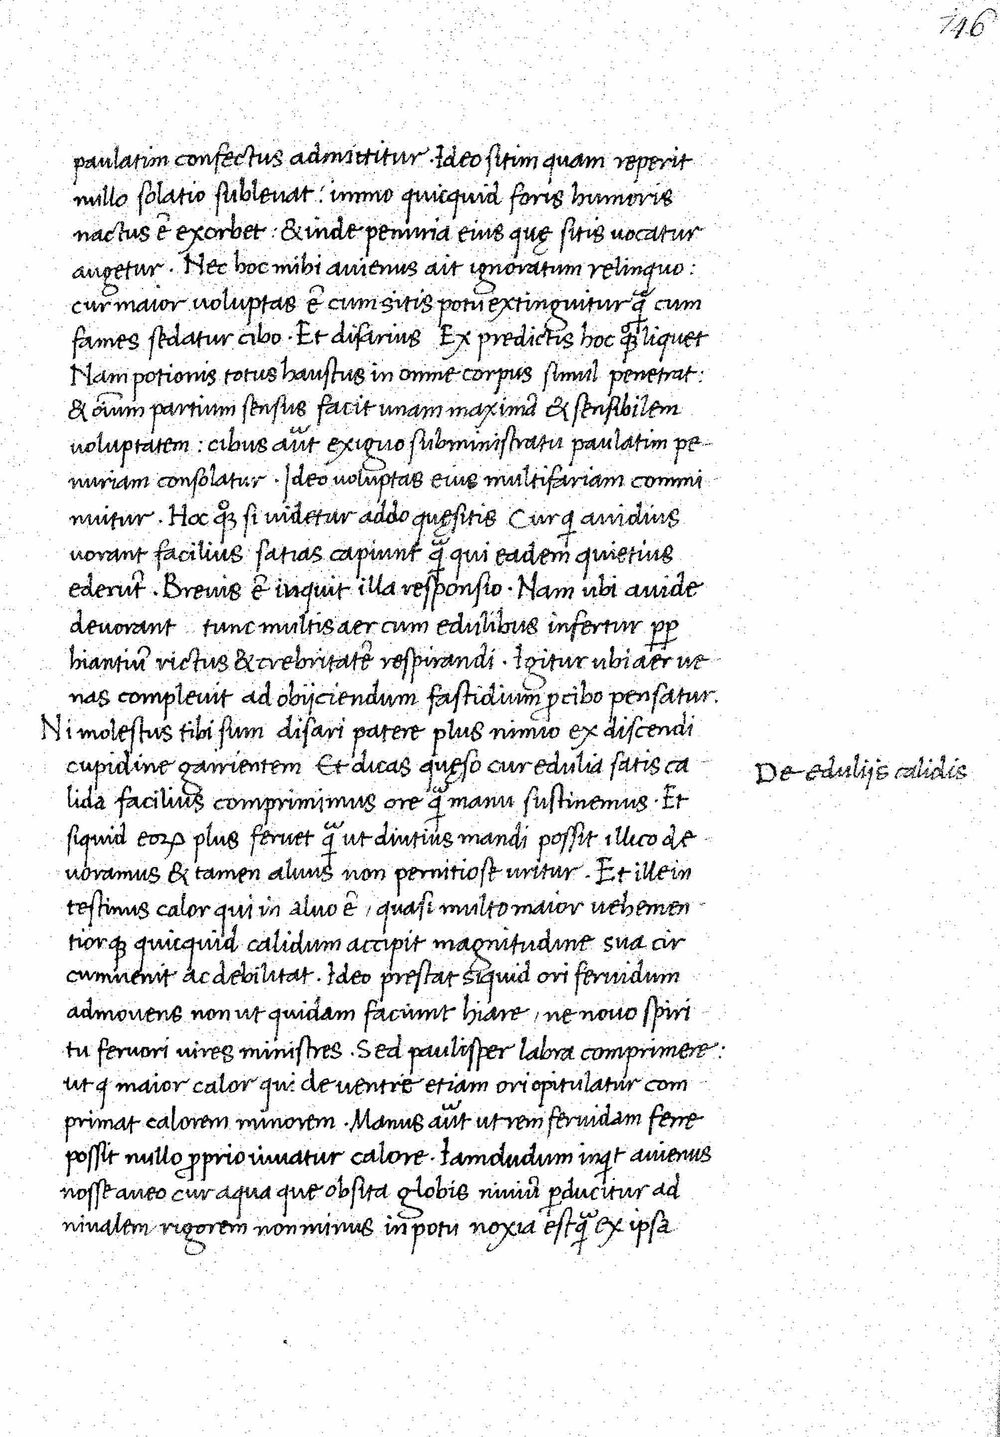 146
paulatim confectus admittitur. Ideo sitim quam reperit
nullo solatio subleuat: immo quicquid foris humoris
nactus ē exorbet: & inde penuria eius quę sitis uocatur
augetur. Nec hoc mihi auienus ait ignoratum relinquo:
cur maior uoluptas ē cum sitis potu extinguitur q̄ cum
fames sedatur cibo. Et disarius Ex predictis hoc quoqȝ liquet
Nam potionis totus haustus in omne corpus simul penetrat:
& oīum partium sensus facit unam maximā & sensibilem
uoluptatem: cibus aūt exiguo subministratu paulatim pe-
nuriam consolatur. Ideo uoluptas eius multifariam commi
nuitur. Hoc qͦqȝ si uidetur addo quęsitis Cur qi auidius
uorant facilius satias capiunt q̄ qui eadem quietius
ederūt. Breuis ē inquit illa responsio. Nam ubi auide
deuorant tunc multis aer cum edulibus infertur ꝓꝑ
hiantiū rictus & crebritatē respirandi. Igitur ubi aer ue
nas compleuit ad obijciendum fastidium ꝓ cibo pensatur.
Ni molestus tibi sum disari patere plus nimio ex discendi
cupidine garrientem Et dicas quęso cur edulia satis ca
lida facilius comprimimus ore q̄ manu sustinemus. Et
siquid eoꝝ plus feruet q̄ ut diutius mandi possit illico de
uoramus & tamen aluus non pernitiose uritur. Et ille in
testinus calor qui in aluo ē, quasi multo maior uehemen
tiorqȝ quicquid calidum accipit magnitudine sua cir
cumuenit ac debilitat. Ideo prestat siquid ori feruidum
admouens non ut quidam faciunt hiare, ne nouo spiri
tu feruori uires ministres. Sed paulisper labra comprimere:
ut q maior calor qui de uentre etiam ori opitulatur com
primat calorem minorem. Manus aūt ut rem feruidam ferre
possit nullo ꝓprio iuuatur calore. Iamdudum inqit auienus
nosse aueo cur aqua que obsita globis niuiū ꝑducitur ad
niualem rigorem non minus in potu noxia est q̄ ex ipsa
De edulijs calidis